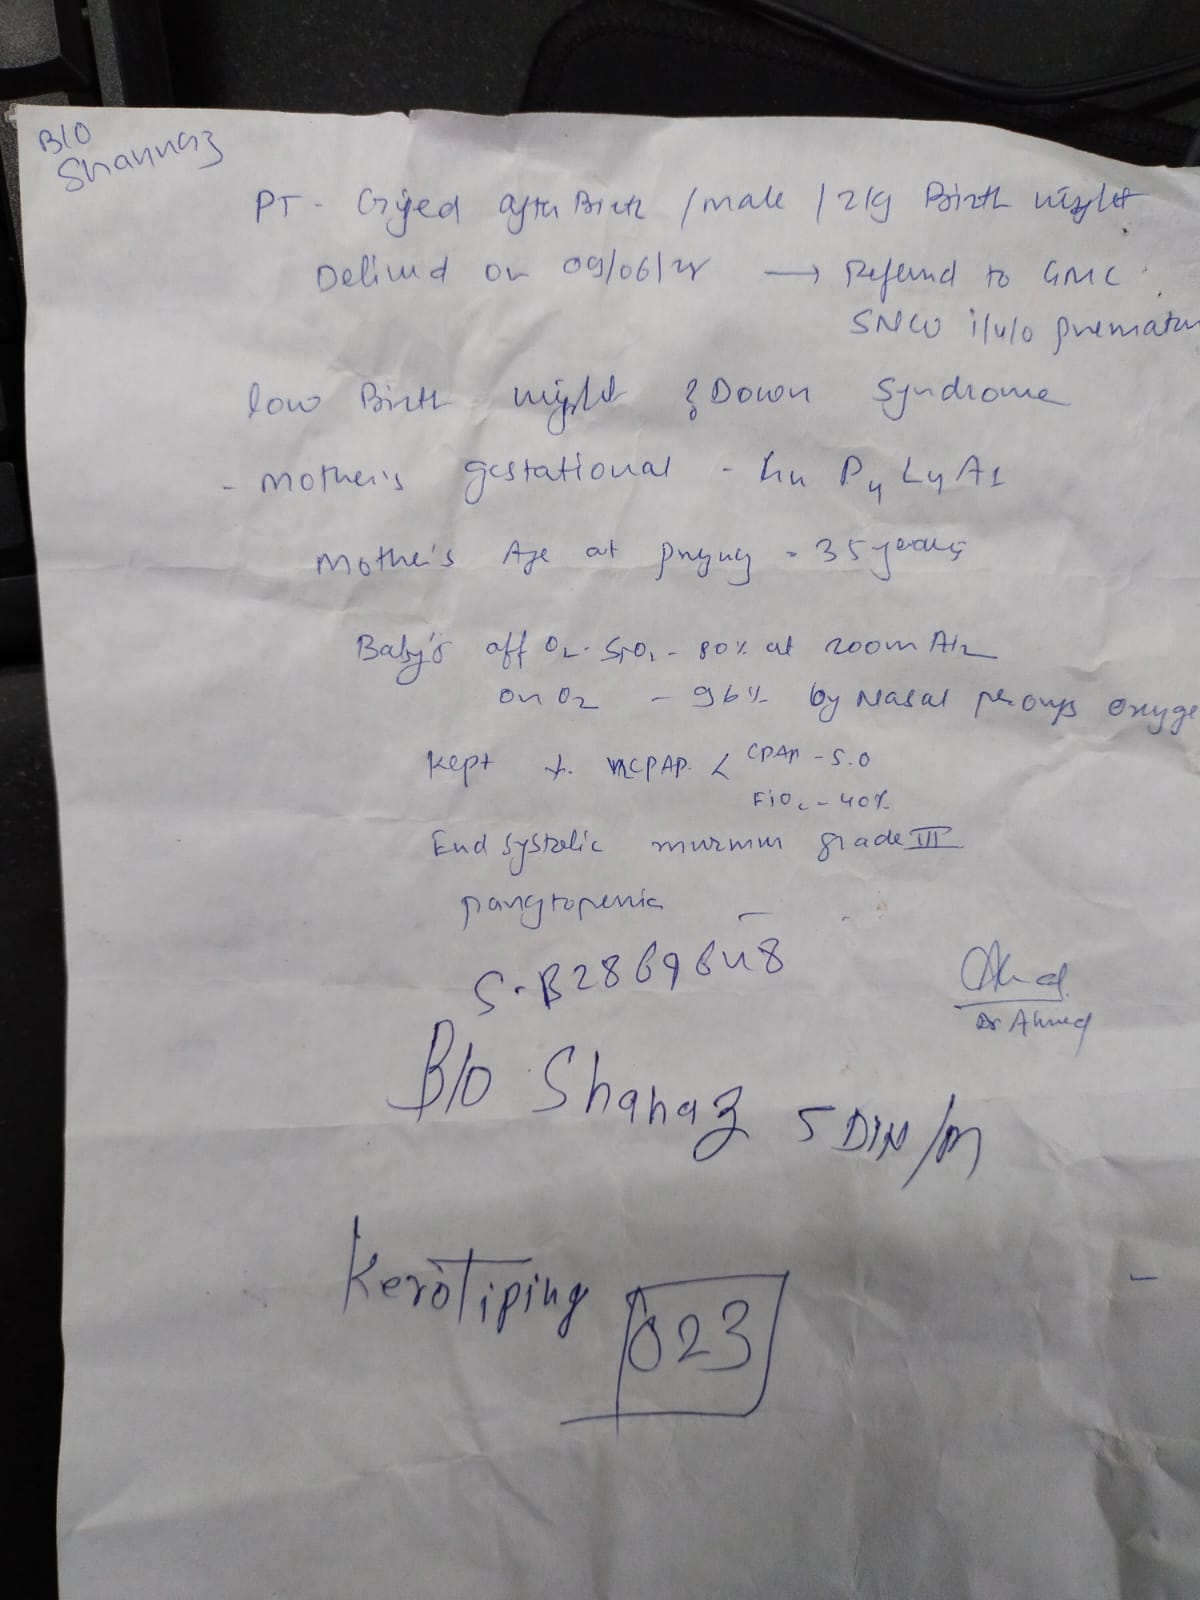 B/O
Shannaz
PT - Cryed after Birth / male / 2kg Birth weight
Delived on 09/06/ → Referred to GMC
SNCU i/v/o prematur
low Birth weight ? Down Syndrome
- Mother's gestational - P4 L4 A1
Mother's Age at - 35 years
Baby's off O2 - SpO2 - 80% at room Air
on O2 - 96% by Nasal prongs oxyge
Kept CPAP - 5.0
FiO2 - 40%
End systolic murmur grade III
pancytopenia
S-B2869648
Dr Ahmed
B/O Shahaz 5 D /M
Kerotiping 023